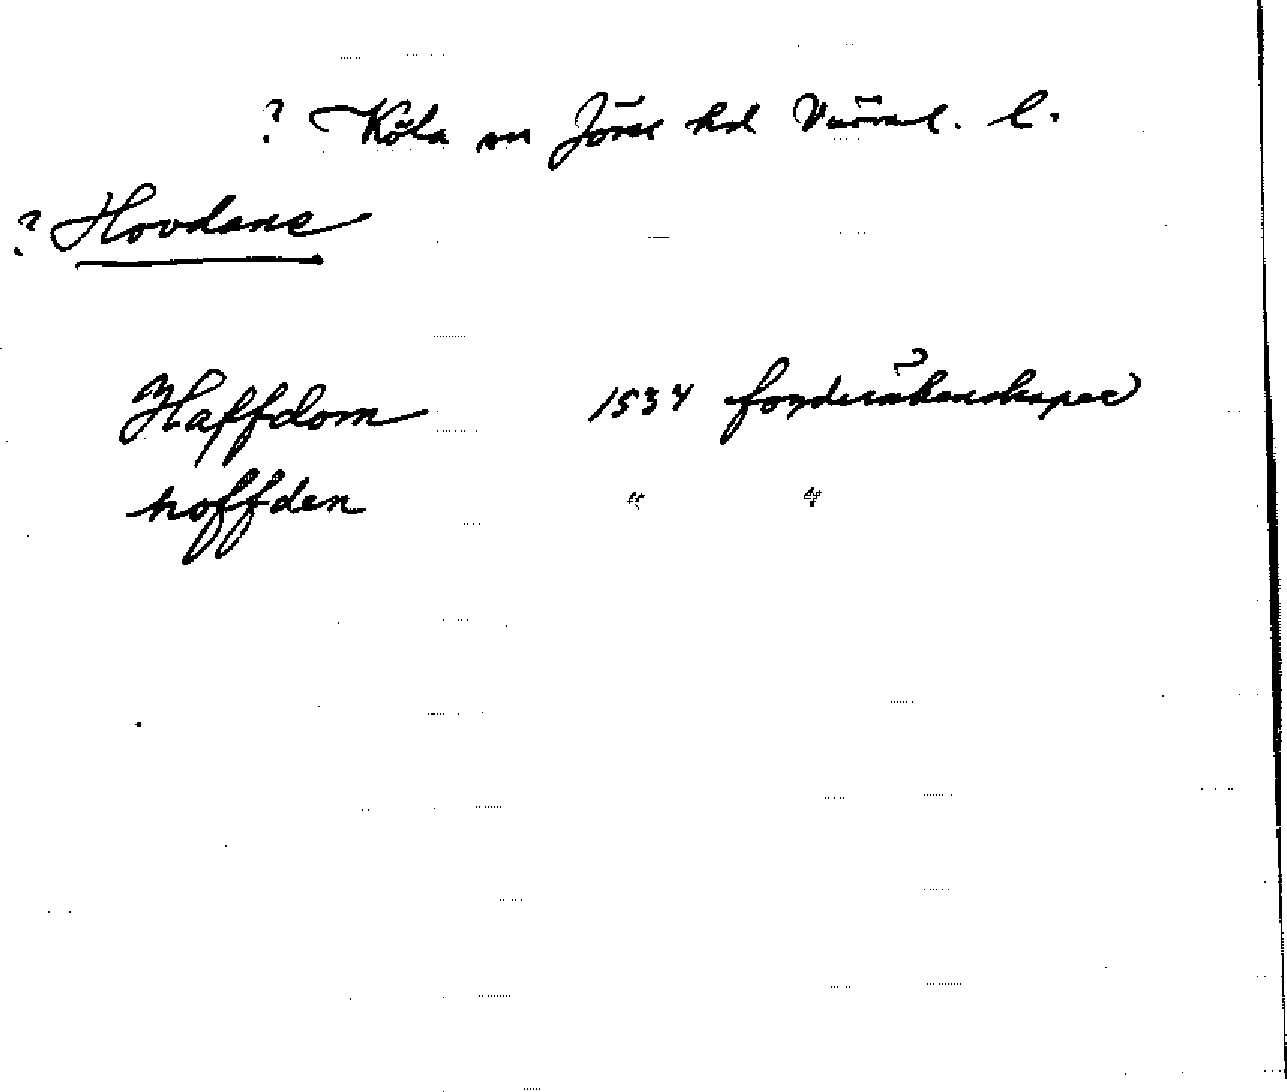 ? Köla sn Jösse hd Värml. l.
? Hovdane
Haffdom 1534 fogderäkenskaper
hoffden " "